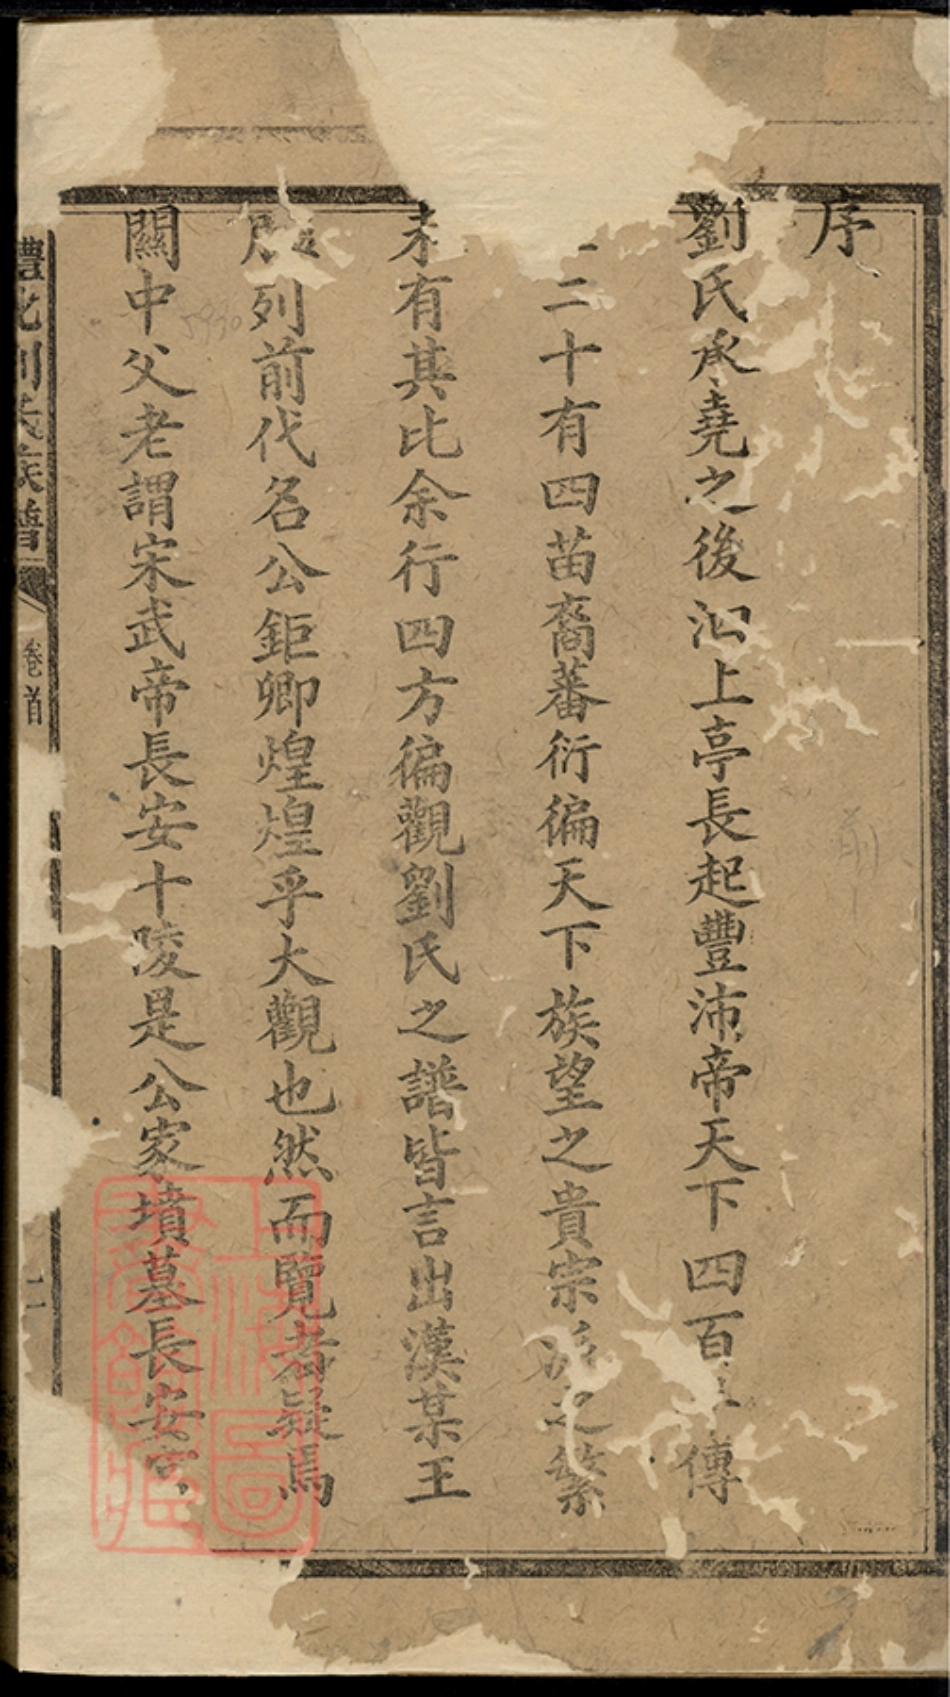 序
劉氏承堯之後泗上亭長起豐沛帝天下四百傳
二十有四苗裔蕃衍徧天下族望之貴宗派之繁
未有其比余行四方徧觀劉氏之譜皆言出漢某王
列前代名公鉅卿煌煌乎大觀也然而覽者疑焉
關中父老謂宋武帝長安十陵是公家墳墓長安宮
澧北劉氏族譜
卷首
二
上海圖書館藏